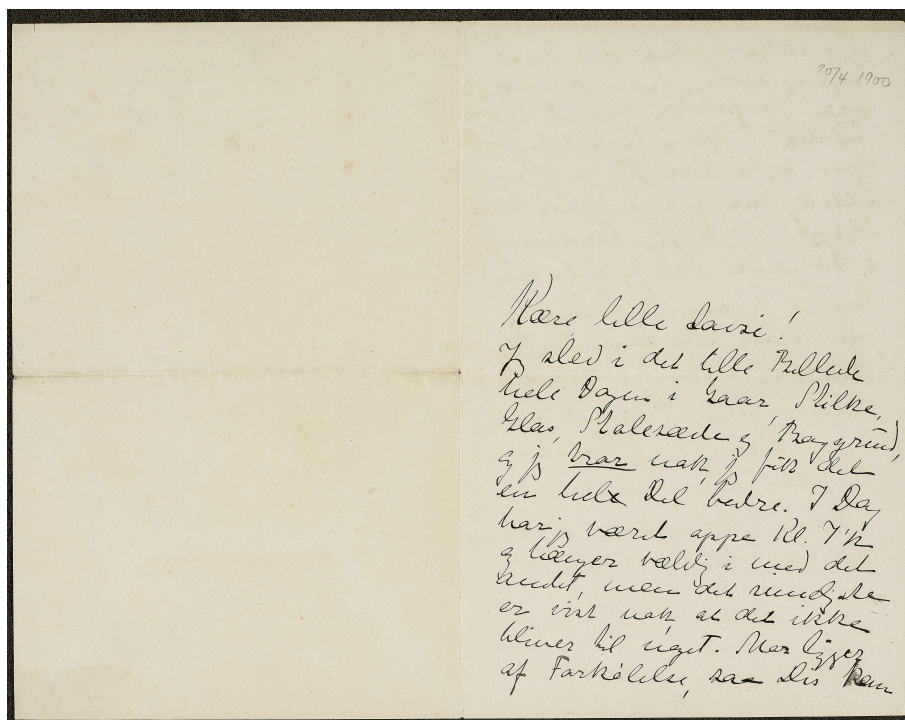 20/4 1900
Kære lille Davsi!
Jeg sled i det lille Billede
hele Dagen i Gaar, Stilke,
Glas, Stolesæde og Baggrund,
og jeg tror nok jeg fik det
en hel Del bedre. I Dag
har jeg været oppe Kl. 7½
og hænger vældig i med det
andet, men det rimeligste
er vist nok at det ikke
bliver til noget. Mor ligger
af Forkølelse, saa Dis kom